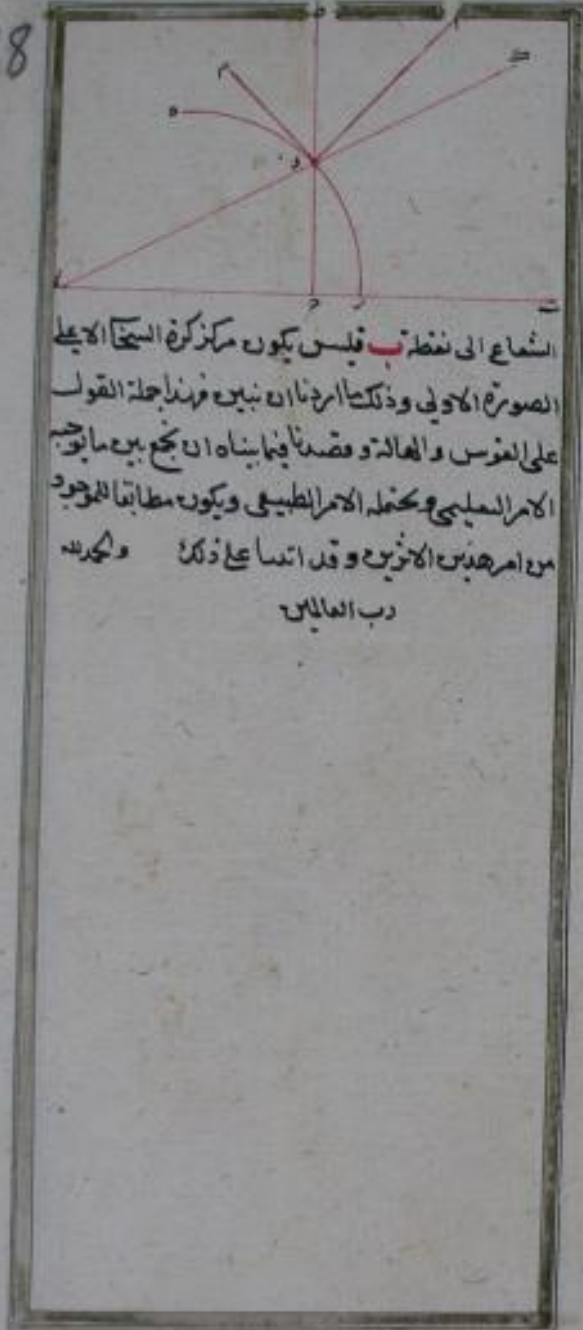 8
الشعاع الى نقطة ب فليس يكون مركز كرة السحاب الا على
الصورة الاولى وذلك ما اردنا ان نبين فهذا جملة القول
على القوس والهالة وقصدنا فيما بيناه ان نجمع بين ما يوجبه
الامر التعليمي ويحتمله الامر الطبيعى ويكون مطابقا للموجود
من امر هذين الاثرين وقد اتينا على ذلك والحمد لله
رب العالمين